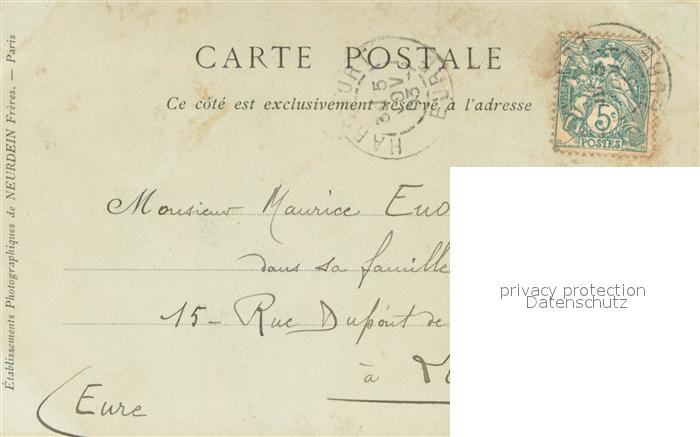 CARTE POSTALE
Ce côté est exclusivement réservé à l'adresse
HARCOURT
5
NOV
EURE
5c
POSTES
Monsieur Maurice
dans sa famille
15 - Rue Dupont de
à
(Eure
privacy protection
Datenschutz
Établissements Photographiques de NEURDEIN Frères. — Paris